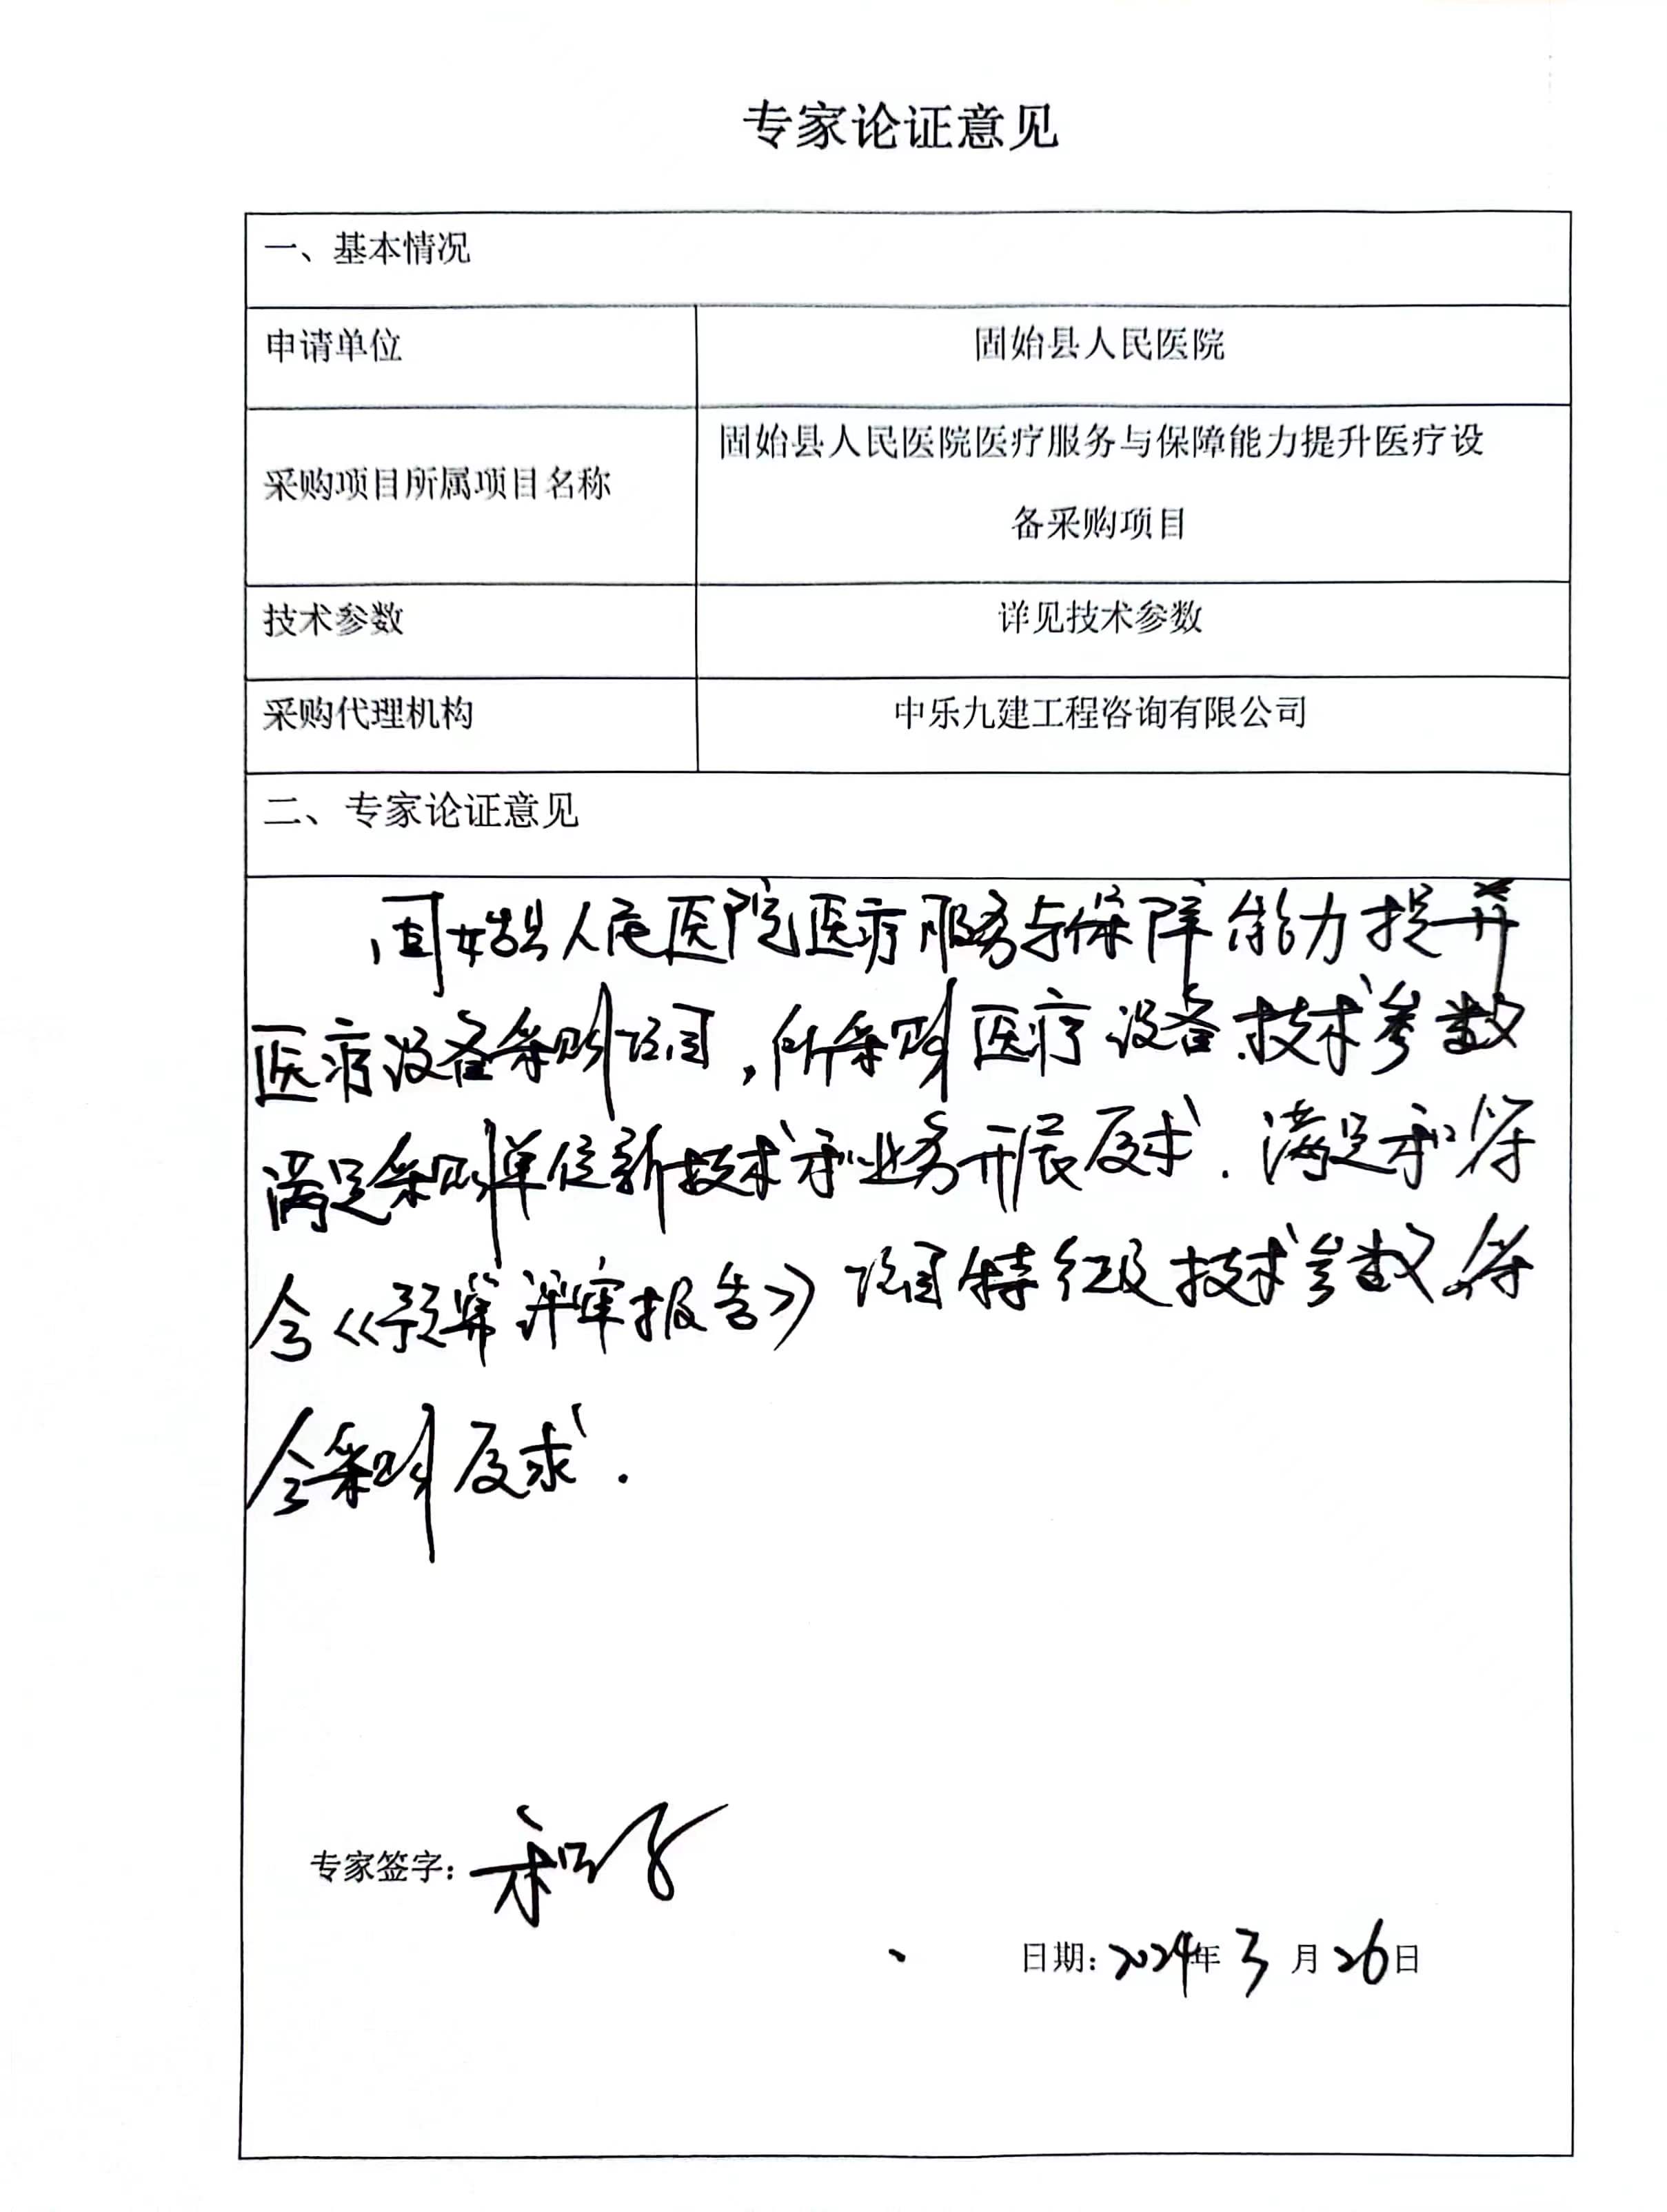 专家论证意见
一、基本情况
申请单位
固始县人民医院
采购项目所属项目名称
固始县人民医院医疗服务与保障能力提升医疗设
备采购项目
技术参数
详见技术参数
采购代理机构
中乐九建工程咨询有限公司
二、专家论证意见
固始县人民医院医疗服务与保障能力提升
医疗设备采购项目，所采购医疗设备技术参数
满足采购单位新技术和业务开展及求．满足和符
合《预算评审报告》项目特征及技术参数，符
合采购及求．
专家签字：
日期：2024年3月26日